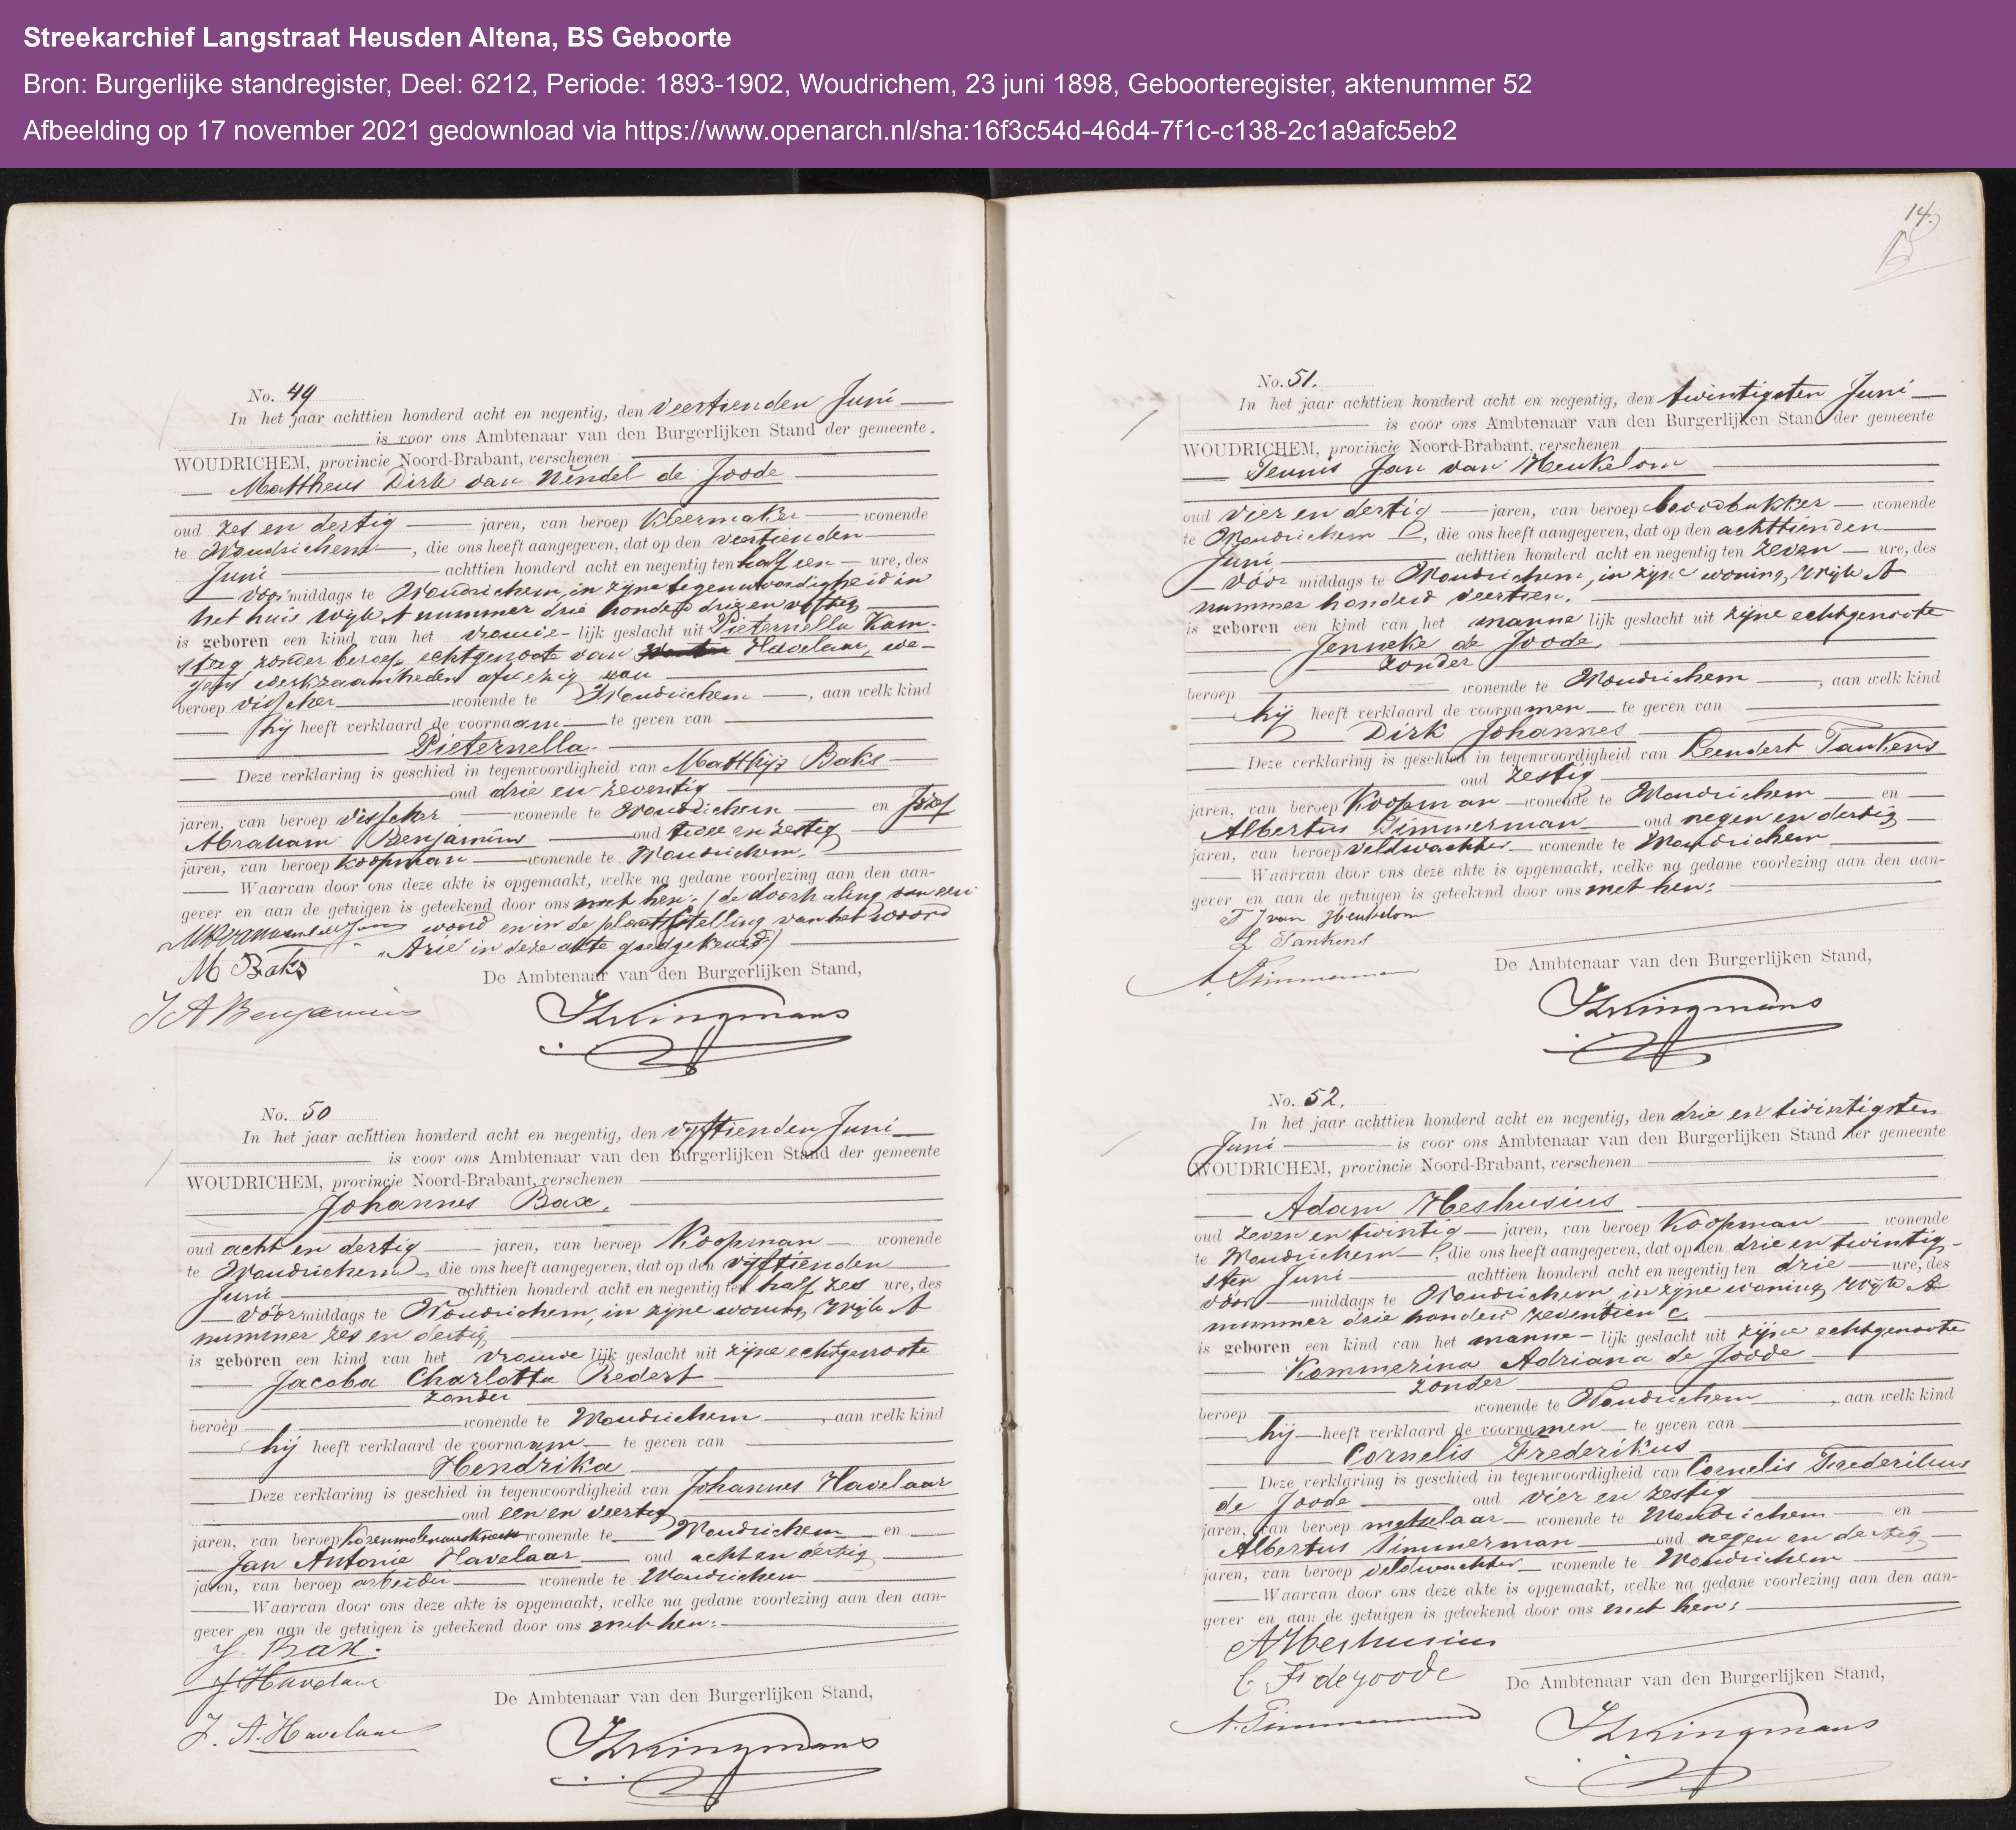 Streekarchief Langstraat Heusden Altena, BS Geboorte
Bron: Burgerlijke standregister, Deel: 6212, Periode: 1893-1902, Woudrichem, 23 juni 1898, Geboorteregister, aktenummer 52
Afbeelding op 17 november 2021 gedownload via https://www.openarch.nl/sha:16f3c54d-46d4-7f1c-c138-2c1a9afc5eb2
No. 49
In het jaar achttien honderd acht en negentig, den veertienden Juni
is voor ons Ambtenaar van den Burgerlijken Stand der gemeente
WOUDRICHEM, provincie Noord-Brabant, verschenen
Mattheus Dirk van Wendel de Joode
oud zes en dertig jaren, van beroep kleermaker wonende
te Woudrichem, die ons heeft aangegeven, dat op den veertienden
Juni achttien honderd acht en negentig ten half een ure, des
voor middags te Woudrichem, in zijne tegenwoordigheid in
het huis wijk A nummer drie honderd drie en vijftig
is geboren een kind van het vrouwe-lijk geslacht uit Pieternella Kam-
steeg zonder beroep echtgenoote van Havelaar, we-
gens werkzaamheden afwezig van
beroep visscher wonende te Woudrichem, aan welk kind
hij heeft verklaard de voornaam te geven van
Pieternella
Deze verklaring is geschied in tegenwoordigheid van Matthijs Baks
oud drie en zeventig
jaren, van beroep visscher wonende te Woudrichem en Jozef
Abraham Benjamins oud twee en zestig
jaren, van beroep koopman wonende te Woudrichem.
Waarvan door ons deze akte is opgemaakt, welke na gedane voorlezing aan den aan-
gever en aan de getuigen is geteekend door ons met hen. (de doorhaling van een
woord en in de plaatsstelling van het woord
"Arie" in deze akte goedgekeurd)
M Baks
De Ambtenaar van den Burgerlijken Stand,
J A Benjamins
No. 50
In het jaar achttien honderd acht en negentig, den vijftienden Juni
is voor ons Ambtenaar van den Burgerlijken Stand der gemeente
WOUDRICHEM, provincie Noord-Brabant, verschenen
Johannes Bax,
oud acht en dertig jaren, van beroep Koopman wonende
te Woudrichem, die ons heeft aangegeven, dat op den vijftienden
Juni achttien honderd acht en negentig ten half zes ure, des
vóór middags te Woudrichem, in zijne woning, Wijk A
nummer zes en dertig
is geboren een kind van het vrouwe lijk geslacht uit zijne echtgenoote
Jacoba Charlotta Redert
zonder
beroep wonende te Woudrichem, aan welk kind
hij heeft verklaard de voornaam te geven van
Hendrika
Deze verklaring is geschied in tegenwoordigheid van Johannes Havelaar
oud een en veertig
jaren, van beroep korenmolenaarsknecht wonende te Woudrichem en
Jan Antonie Havelaar oud acht en dertig
jaren, van beroep arbeider wonende te Woudrichem
Waarvan door ons deze akte is opgemaakt, welke na gedane voorlezing aan den aan-
gever en aan de getuigen is geteekend door ons met hen.
J. Bax.
J Havelaar
De Ambtenaar van den Burgerlijken Stand,
J. A. Havelaar
14.
No. 51.
In het jaar achttien honderd acht en negentig, den twintigsten Juni
is voor ons Ambtenaar van den Burgerlijken Stand der gemeente
WOUDRICHEM, provincie Noord-Brabant, verschenen
Teunis Jan van Heukelom
oud vier en dertig jaren, van beroep broodbakker wonende
te Woudrichem, die ons heeft aangegeven, dat op den achttienden
Juni achttien honderd acht en negentig ten zeven ure, des
vóór middags te Woudrichem, in zijne woning, Wijk A
nummer honderd veertien.
is geboren een kind van het manne lijk geslacht uit zijne echtgenoote
Jenneke de Joode,
zonder
beroep wonende te Woudrichem, aan welk kind
hij heeft verklaard de voornamen te geven van
Dirk Johannes
Deze verklaring is geschied in tegenwoordigheid van Leendert Tankens
oud zestig
jaren, van beroep Koopman wonende te Woudrichem en
Albertus Timmerman oud negen en dertig
jaren, van beroep veldwachter wonende te Woudrichem
Waarvan door ons deze akte is opgemaakt, welke na gedane voorlezing aan den aan-
gever en aan de getuigen is geteekend door ons met hen.
T J van Heukelom
L Tankens
A. Timmerman
De Ambtenaar van den Burgerlijken Stand,
No. 52.
In het jaar achttien honderd acht en negentig, den drie en twintigsten
Juni is voor ons Ambtenaar van den Burgerlijken Stand der gemeente
WOUDRICHEM, provincie Noord-Brabant, verschenen
Adam Heshusius
oud zeven en twintig jaren, van beroep Koopman wonende
te Woudrichem, die ons heeft aangegeven, dat op den drie en twintig-
sten Juni achttien honderd acht en negentig ten drie ure, des
vóór middags te Woudrichem, in zijne woning, Wijk A
nummer drie honderd zeventien c
is geboren een kind van het manne-lijk geslacht uit zijne echtgenoote
Kommerina Adriana de Joode
zonder
beroep wonende te Woudrichem, aan welk kind
hij heeft verklaard de voornamen te geven van
Cornelis Frederikus
Deze verklaring is geschied in tegenwoordigheid van Cornelis Frederikus
de Joode oud vier en zestig
jaren, van beroep metselaar wonende te Woudrichem en
Albertus Timmerman oud negen en dertig
jaren, van beroep veldwachter wonende te Woudrichem
Waarvan door ons deze akte is opgemaakt, welke na gedane voorlezing aan den aan-
gever en aan de getuigen is geteekend door ons met hen.
A Heshusius
C. F. de Joode
De Ambtenaar van den Burgerlijken Stand,
A. Timmerman